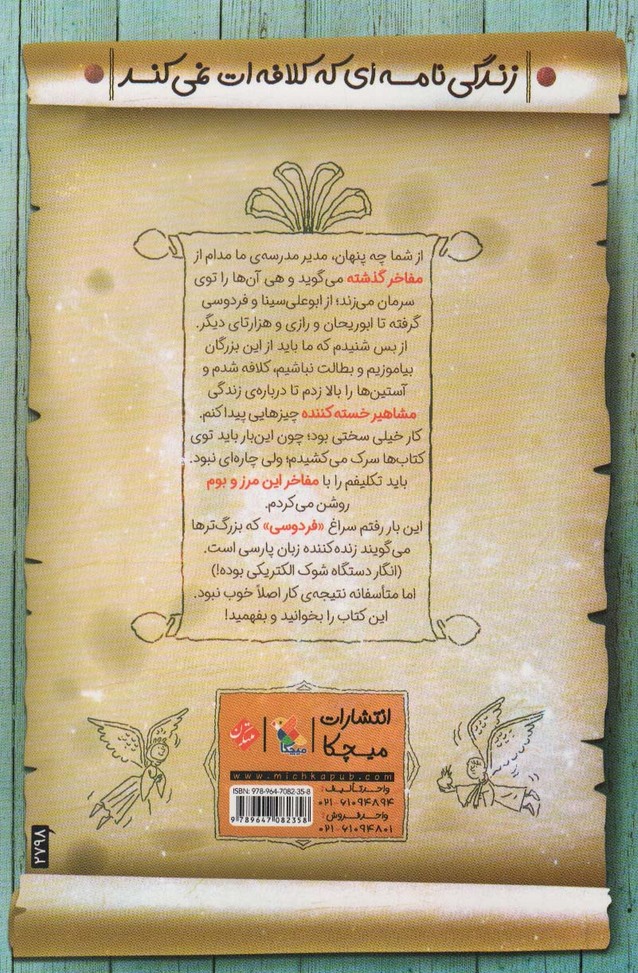 زندگی‌نامه‌ای که کلافه‌ات نمی‌کند
از شما چه پنهان، مدیر مدرسه‌ی ما مدام از
مفاخر گذشته می‌گوید و هی آن‌ها را توی
سرمان می‌زند؛ از ابوعلی‌سینا و فردوسی
گرفته تا ابوریحان و رازی و هزارتای دیگر.
از بس شنیدم که ما باید از این بزرگان
بیاموزیم و بطالت نباشیم، کلافه شدم و
آستین‌ها را بالا زدم تا درباره‌ی زندگی
مشاهیر خسته‌کننده چیزهایی پیدا کنم.
کار خیلی سختی بود؛ چون این‌بار باید توی
کتاب‌ها سرک می‌کشیدم؛ ولی چاره‌ای نبود.
باید تکلیفم را با مفاخر این مرز و بوم
روشن می‌کردم.
این بار رفتم سراغ «فردوسی» که بزرگ‌ترها
می‌گویند زنده‌کننده زبان پارسی است.
(انگار دستگاه شوک الکتریکی بوده!)
اما متأسفانه نتیجه‌ی کار اصلاً خوب نبود.
این کتاب را بخوانید و بفهمید!
انتشارات
میچکا
میچکا
مبتکران
www.michkapub.com
واحد تألیف:
۰۲۱-۶۱۰۹۴۸۹۴
واحد فروش:
۰۲۱-۶۱۰۹۴۸۰۱
ISBN: 978-964-7082-35-8
9 789647 082358
۲۷۹۸